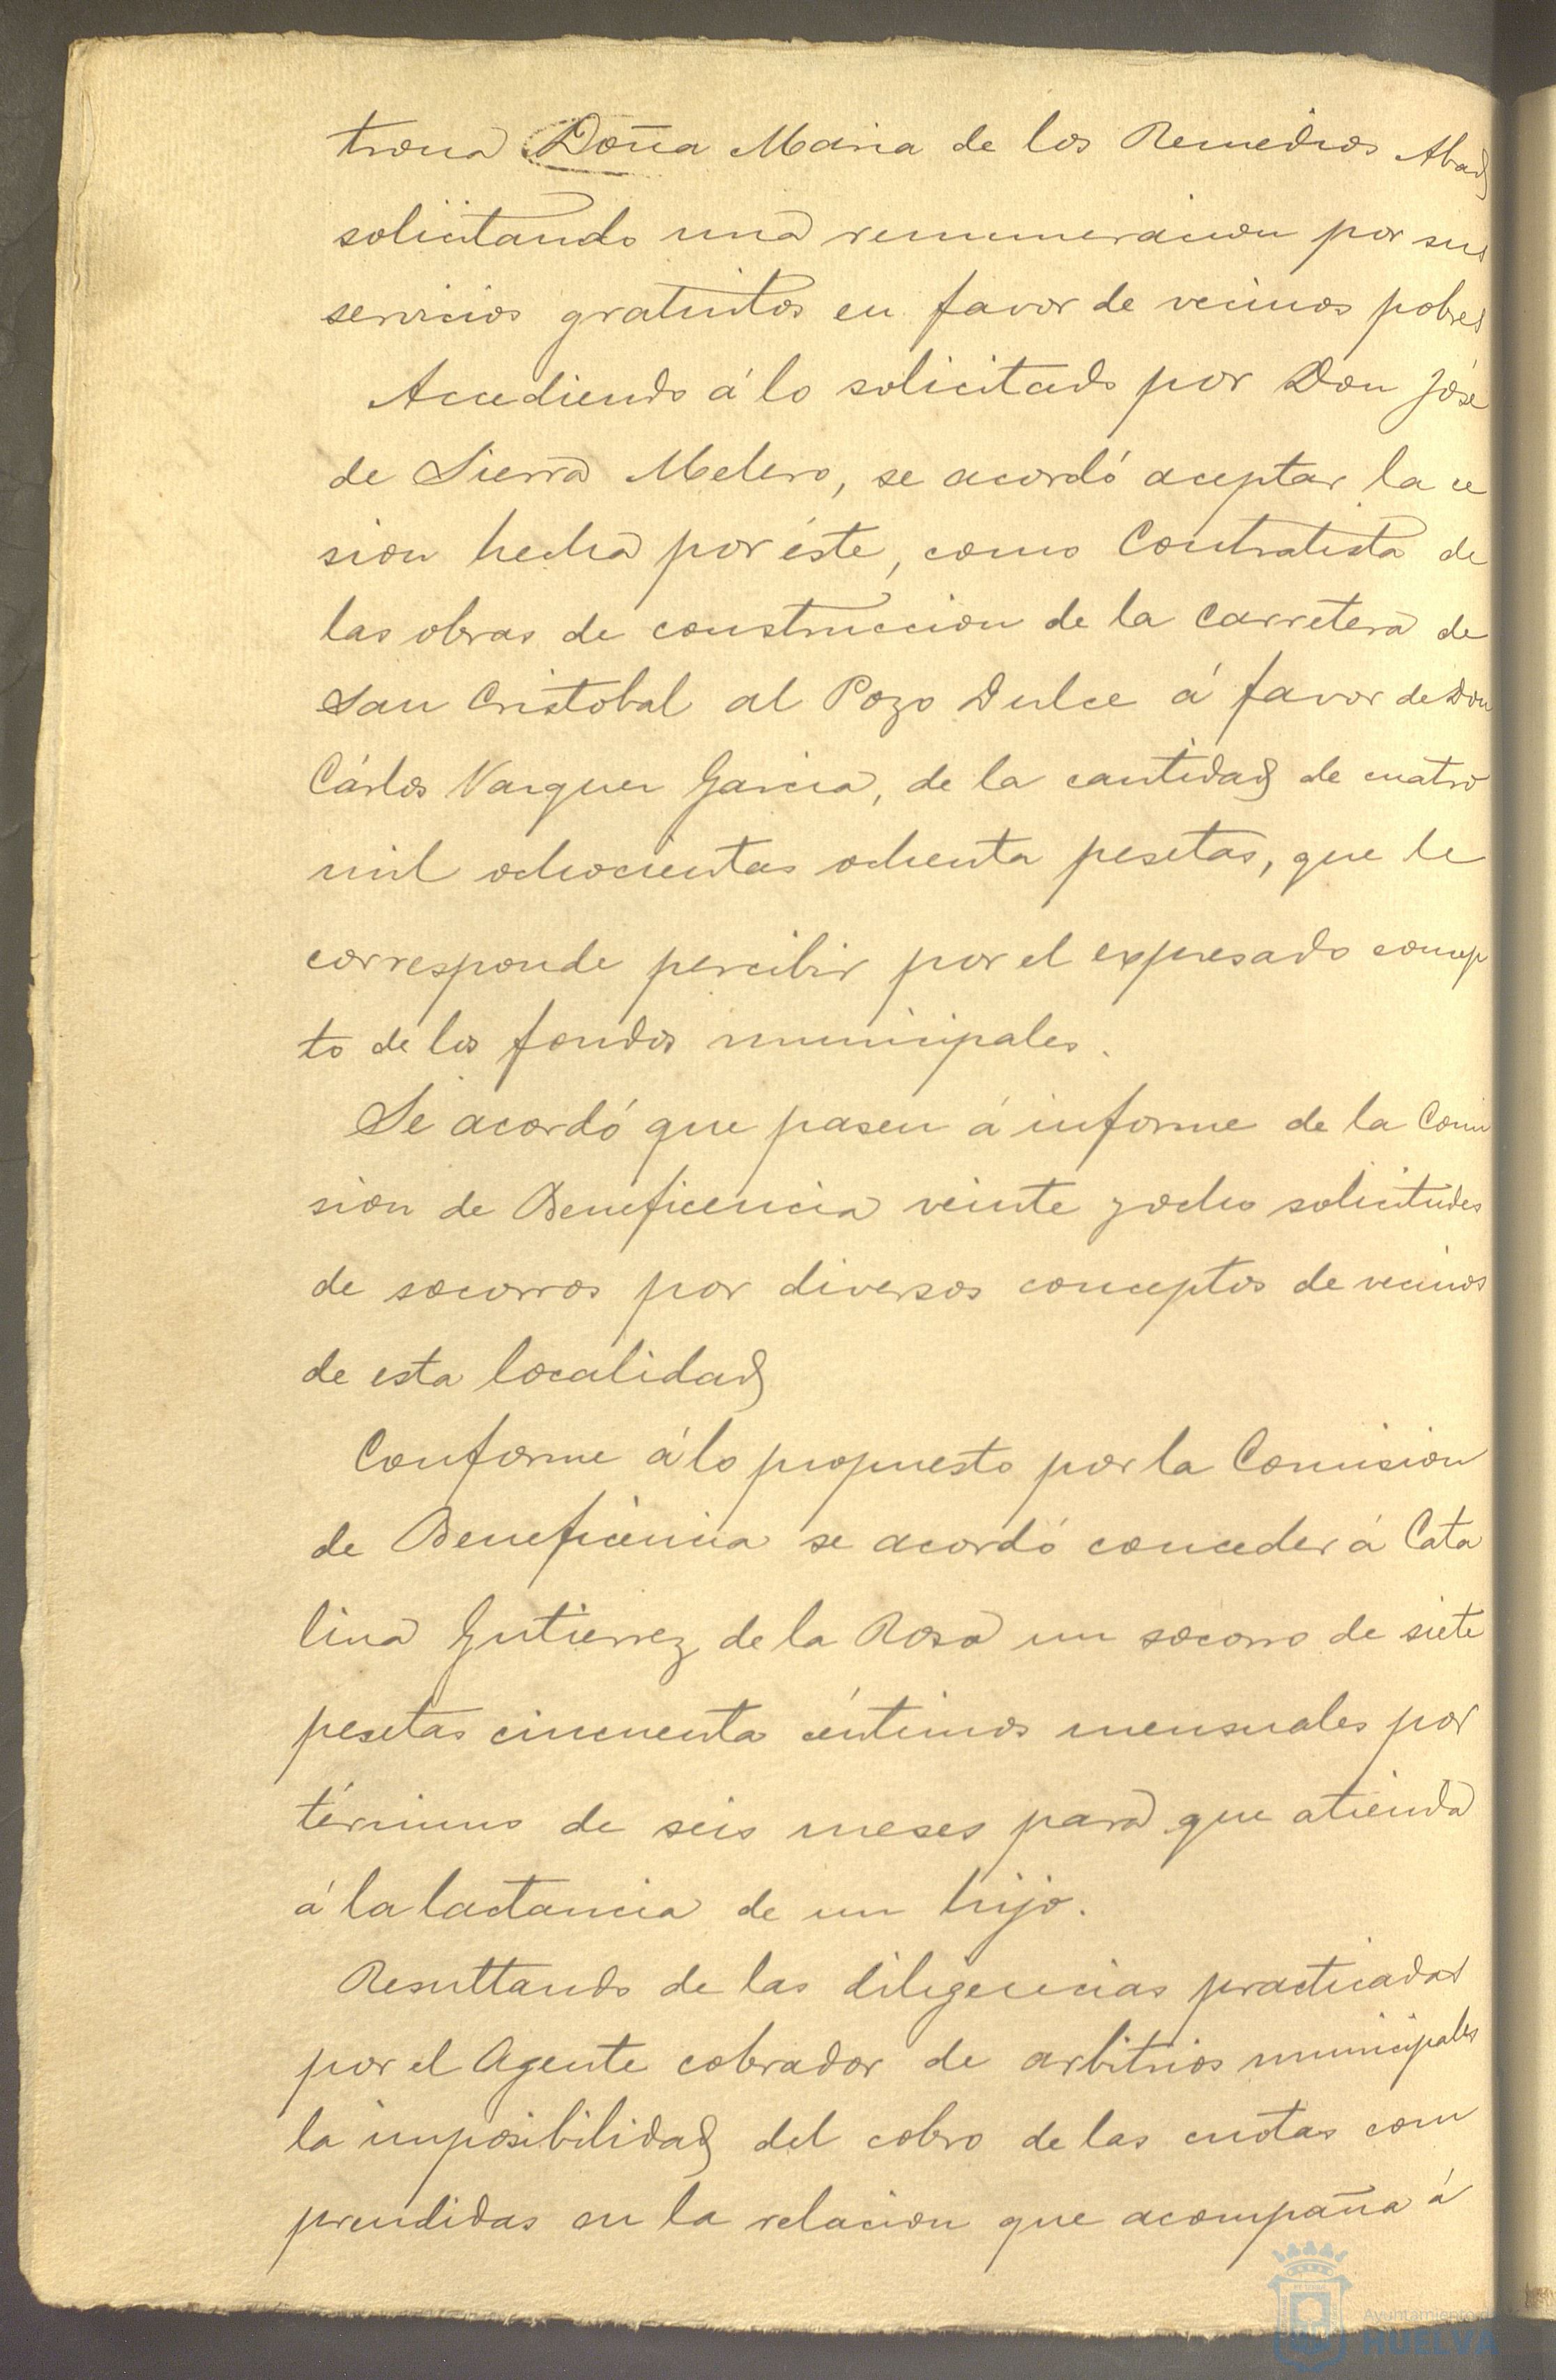 trona Doña Maria de los Remedios Abad
solicitando una remuneracion por sus
servicios gratuitos en favor de vecinos pobres
Accediendo á lo solicitado por Don José
de Sierra Melero, se acordó aceptar la ce
sion hecha por éste, como Contratista de
las obras de construccion de la carretera de
San Cristobal al Pozo Dulce á favor de Don
Cárlos Vazquez Garcia, de la cantidad de cuatro
mil ochocientas ochenta pesetas, que le
corresponde percibir por el expresado concep
to de los fondos municipales.
Se acordó que pasen á informe de la Comi
sion de Beneficencia veinte y ocho solicitudes
de socorros por diversos conceptos de vecinos
de esta localidad
Conforme á lo propuesto por la Comision
de Beneficencia se acordó conceder á Cata
lina Gutierrez de la Rosa un socorro de siete
pesetas cincuenta céntimos mensuales por
término de seis meses para que atienda
á la lactancia de un hijo.
Resultando de las diligencias practicadas
por el Agente cobrador de arbitrios municipales
la imposibilidad del cobro de las cuotas com
prendidas en la relacion que acompaña á
Ayuntamiento de
HUELVA